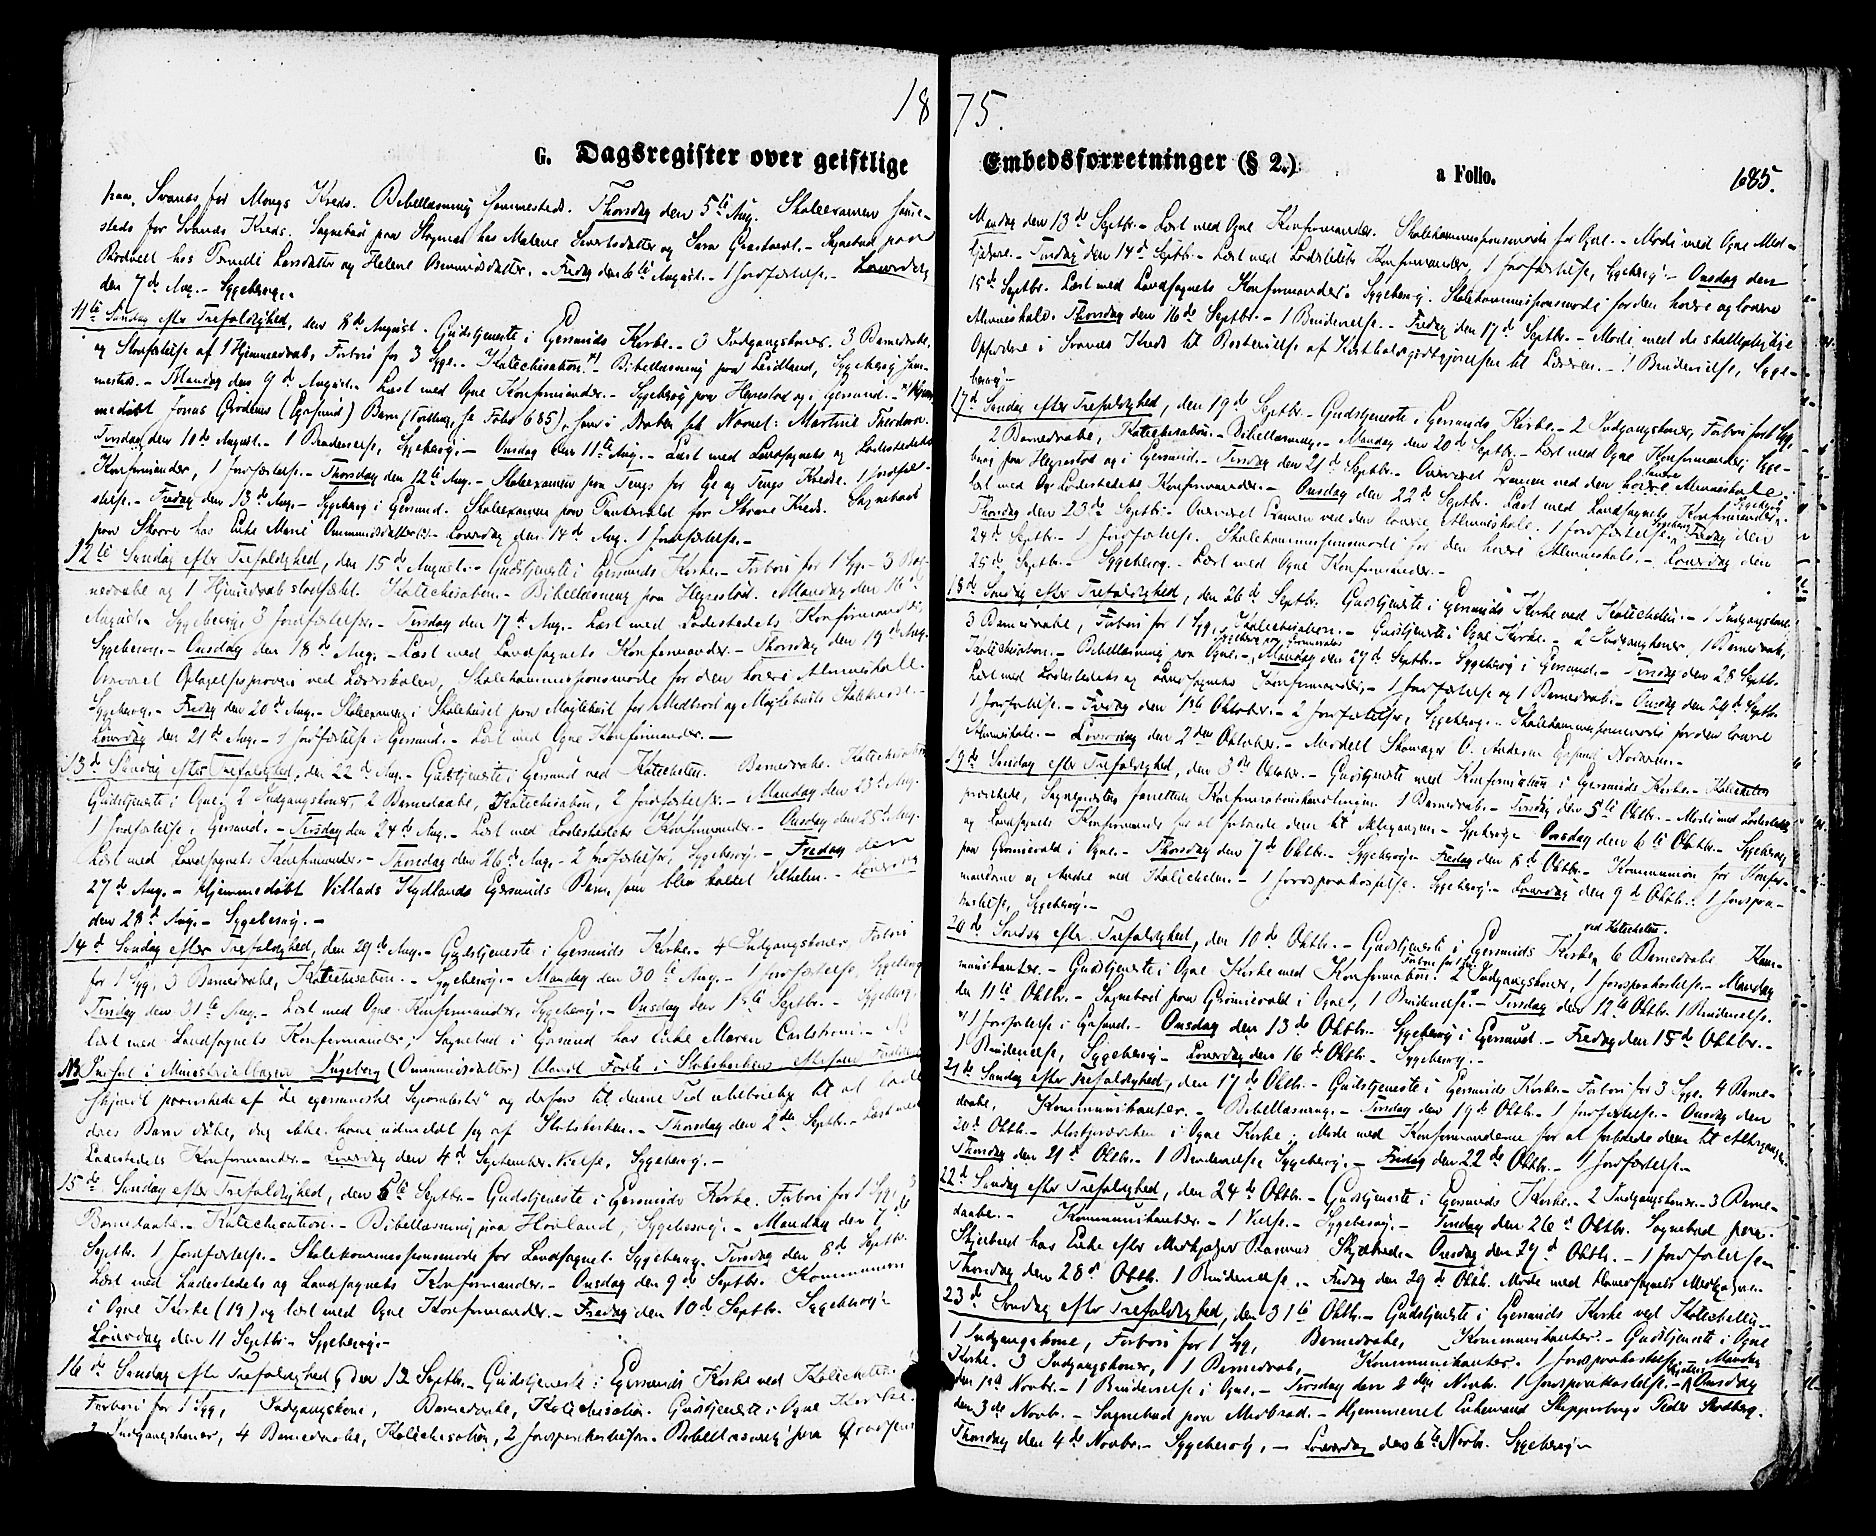 18 75.
G. Dagsregister over geistlige Embedsforretninger (§ 2.) a Folio. 685.
paa Svanes for Mongs Kreds. Bibellæsning sammesteds. Thorsdag den 5te Aug. Skoleexamen samme-
steds for Svanes Kreds. Sognebud paa hos Malene Sivertsdatter og Sara - Sognebud paa
hos Larsdatter og Helene - Fredag den 6te August. - 1 Jordfæstelse. - Løverdag
den 7de Aug. - Sygebesøg. -
11te Søndag efter Trefoldighed, den 8de August. Gudstjeneste i Egersunds Kirke. - 3 Indgangskoner. 3 Barnedaabe,
og Stadfæstelse af 1 Hjemmedaab, Forbøn for 3 Syge. - Katechisation. - Bibellæsning paa Leidland, Sygebesøg sam-
mesteds. - Mandag den 9de August. Læst med Ogne Konfirmander. - Sygebesøg paa Hegrestad og i Egersund. - Hjem-
medøbt Jonas Grødems (Egersund) Barn (Tvilling, se Folio 685), som i Daaben fik Navnet: Martine Theodora.
Tirsdag den 10de August. - 1 Brudevielse, Sygebesøg. - Onsdag den 11te Aug. - Læst med Landsognets og Ladestedets
Konfirmander, 1 Jordfæstelse. - Thorsdag den 12te Aug. - Skoleexamen paa Tengs for Eie og Tengs Kredse. 1 Jordfæs-
telse. - Fredag den 13de Aug. - Sygebesøg i Egersund. Skoleexamen paa for Kreds. Sognebud
paa hos Enke Marie Ommundsdatter. - Løverdag den 14de Aug. 1 Jordfæstelse. -
12te Søndag efter Trefoldighed, den 15de August. - Gudstjeneste i Egersunds Kirke. - Forbøn for 1 Syg. - 3 Bar-
nedaabe og 1 Hjemmedaab stadfæstet. Katechisation. - Bibellæsning paa Hegrestad. Mandag den 16de
August. Sygebesøg, 3 Jordfæstelser. - Tirsdag den 17de Aug. - Læst med Ladestedets Konfirmander,
Sygebesøg. - Onsdag den 18de Aug. - Læst med Landsognets Konfirmander. - Thorsdag den 19de Aug.
Overværet Optagelsesprøven ved Lærerskolen, Skolekommissionsmøde for den høiere Almueskole.
Sygebesøg. - Fredag den 20de Aug. - Skoleexamen i Skolehuset paa for og Skolekreds. -
Løverdag den 21de Aug. - 1 Jordfæstelse i Egersund. - Læst med Ogne Konfirmander. -
13de Søndag efter Trefoldighed, den 22de Aug. - Gudstjeneste i Egersund ved Katecheten. Barnedaabe. Katechisation
Gudstjeneste i Ogne. 2 Indgangskoner, 2 Barnedaabe, Katechisation, 2 Jordfæstelser. - Mandag den 23de Aug.
1 Jordfæstelse i Egersund. - Tirsdag den 24de Aug. - Læst med Ladestedets Konfirmander. - Onsdag den 25de Aug.
Læst med Landsognets Konfirmander. - Thorsdag den 26de Aug. - 2 Jordfæstelser, Sygebesøg. - Fredag den
27de Aug. - Hjemmedøbt Villads Kydlands Egersunds Barn, som blev kaldet Vilhelm. - Løverdag
den 28de Aug. - Sygebesøg. -
14de Søndag efter Trefoldighed, den 29de Aug. - Gudstjeneste i Egersunds Kirke. - 4 Indgangskoner, Forbøn
for 1 Syg, 3 Barnedaabe, Katechisation. - Sygebesøg. - Mandag den 30te Aug. - 1 Jordfæstelse, Sygebesøg.
Tirsdag den 31te Aug. - Læst med Ogne Konfirmander, Sygebesøg. - Onsdag den 1ste Septbr. - Sygebesøg.
læst med Landsognets Konfirmander, Sognebud i Egersund hos Enke Maren
NB Indført i Ministerialbogen Ingeborg (Ommundsdatter)
af "de egersundske Separatister" og derfor til denne Tid uberettiget til at lade
deres Barn døbe, dog ikke have udmeldt sig af Statskirken. - Thorsdag den 2den Septbr. - Læst med
Ladestedets Konfirmander. - Løverdag den 4de September. Vielse, Sygebesøg. -
15de Søndag efter Trefoldighed, den 5te Septbr. - Gudstjeneste i Egersunds Kirke. Forbøn for 1 Syg, 3
Barnedaabe. - Katechisation. - Bibellæsning paa Hovland, Sygebesøg. - Mandag den
Septbr. 1 Jordfæstelse. - Skolekommissionsmøde for Landsognet. Sygebesøg. Tirsdag den 8de Septbr.
Læst med Ladestedets og Landsognets Konfirmander. - Onsdag den 9de Septbr. Kommunion
i Ogne Kirke (19) og læst med Ogne Konfirmander. - Fredag den 10de Septbr. Sygebesøg. -
Løverdag den 11 Septbr. - Sygebesøg. -
16de Søndag efter Trefoldighed, den 12 Septbr. - Gudstjeneste i Egersunds Kirke ved Katecheten.
Forbøn for 1 Syg, Indgangskone, Barnedaabe, Katechisation. Gudstjeneste i Ogne Kirke.
2 Indgangskoner, 4 Barnedaabe, Katechisation, 2 Jordspaakastelser. Bibellæsning paa
Mandag den 13de Septbr. - Læst med Ogne Konfirmander. Skolekommissionsmøde for Ogne. - Møde med Ogne Med-
hjælpere. - Tirsdag den 14de Septbr. - Læst med Ladestedets Konfirmander, 1 Jordfæstelse, Sygebesøg. - Onsdag den
15de Septbr. Læst med Landsognets Konfirmander. Sygebesøg. Skolekommissionsmøde for den høiere og lavere
Almueskole. Thorsdag den 16de Septbr. - 1 Brudevielse. - Fredag den 17de Septbr. - Møde med de skattepligtige
Opsiddere i Svanes Kreds til Bestemmelse af Kostholdsgodtgjørelsen til Læreren. - 1 Brudevielse, Syge-
besøg. -
17de Søndag efter Trefoldighed, den 19de Septbr. - Gudstjeneste i Egersunds Kirke. - 2 Indgangskoner, Forbøn for 1 Syg,
2 Barnedaabe, Katechisation. - Bibellæsning. - Mandag den 20de Septbr. - Læst med Ogne Konfirmander, Syge-
besøg paa Hegrestad og i Egersund. - Tirsdag den 21de Septbr. - Overværet Examen ved den lavere Almueskole,
læst med Ladestedets Konfirmander. - Onsdag den 22de Septbr. Læst med Landsognets Konfirmander, Sygebesøg.
Thorsdag den 23de Septbr. - Overværet Examen ved den lavere Almueskole. 1 Jordfæstelse. Sygebesøg. Fredag den
24de Septbr. - 1 Jordfæstelse. Skolekommissionsmøde for den høiere Almueskole. - Løverdag den
25de Septbr. - Sygebesøg. - Læst med Ogne Konfirmander. -
18de Søndag efter Trefoldighed, den 26de Septbr. Gudstjeneste i Egersunds Kirke ved Katecheten. - 1 Indgangskone
3 Barnedaabe, Forbøn for 1 Syg, Katechisation. - Gudstjeneste i Ogne Kirke. - 2 Indgangskoner, 1 Barnedaab,
Katechisation. - Bibellæsning paa Ogne. - Mandag den 27de Septbr. - Sygebesøg i Egersund. - Tirsdag den 28 Septbr.
Læst med Ladestedets og Landsognets Konfirmander, - 1 Jordfæstelse og 1 Barnedaab. - Onsdag den 29de Septbr.
1 Jordfæstelse. - Fredag den 1ste Oktober. - 2 Jordfæstelser, Sygebesøg. - Skolekommissionsmøde for den lavere
Almueskole. - Løverdag den 2den Oktober. - Meddelt Skomager O. Andersen Egersund Nadveren. -
19de Søndag efter Trefoldighed, den 3de Oktober. - Gudstjeneste med Konfirmation i Egersunds Kirke. - Katecheten
prædikede, Sognepresten forrettede Konfirmationshandlingen. 1 Barnedaab. - Tirsdag den 5te Oktbr. - Møde med Ladestedets
og Landsognets Konfirmander for at forberede dem til Altergangen. - Sygebesøg. Onsdag den 6te Oktbr. - Sygebesøg
paa i Ogne. - Thorsdag den 7de Oktbr. - Sygebesøg. Fredag den 8de Oktbr. - Kommunion for Konfir-
manderne og Andre ved Katecheten. - 1 Jordspaakastelse. Sygebesøg. - Løverdag den 9de Oktbr. - 1 Jordspaa-
kastelse, Sygebesøg. -
20de Søndag efter Trefoldighed, den 10de Oktbr. - Gudstjeneste i Egersunds Kirke ved Katecheten. 6 Barnedaabe. Kom-
munikanter. - Gudstjeneste i Ogne Kirke med Konfirmation. Forbøn for 1 Syg. 2 Indgangskoner, 1 Jordspaakastelse. - Mandag
den 11te Oktbr. - Sognebud paa i Ogne, 1 Brudevielse. - Tirsdag den 12te Oktbr. 1 Brudevielse.
1 Jordfæstelse i Egersund. - Onsdag den 13de Oktbr. - Sygebesøg i Egersund. - Fredag den 15de Oktbr. -
1 Brudevielse, Sygebesøg. - Løverdag den 16de Oktbr. - Sygebesøg. -
21de Søndag efter Trefoldighed, den 17de Oktbr. - Gudstjeneste i Egersunds Kirke. - Forbøn for 3 Syge. 4 Barne-
daabe, Kommunikanter. - Bibellæsning. - Tirsdag den 19de Oktbr. - 1 Jordfæstelse. - Onsdag den
20de Oktbr. - i Ogne Kirke. Møde med Konfirmanderne for at forberede dem til Altergangen.
Thorsdag den 21de Oktbr. - 1 Brudevielse, Sygebesøg. - Fredag den 22de Oktbr. - 1 Jordfæstelse. -
22de Søndag efter Trefoldighed, den 24de Oktbr. - Gudstjeneste i Egersunds Kirke. - 2 Indgangskoner. - 3 Barne-
daabe. - Kommunikanter. - 1 Vielse. - Sygebesøg. - Tirsdag den 26de Oktbr. Sognebud paa
hos Enke efter Rasmus - Onsdag den 27de Oktbr. - 1 Jordfæstelse. -
Thorsdag den 28de Oktbr. 1 Brudevielse. - Fredag den 29de Oktbr. Møde med Landsognets Medhjælpere.
23de Søndag efter Trefoldighed, den 31te Oktbr. - Gudstjeneste i Egersunds Kirke ved Katecheten. -
1 Indgangskone, Forbøn for 1 Syg, Barnedaabe, Kommunikanter. - Gudstjeneste i Ogne
Kirke. 3 Indgangskoner, 1 Barnedaab, Kommunikanter. 1 Jordspaakastelse. Mandag
den 1ste Novbr. - 1 Brudevielse i Ogne. - Tirsdag den 2den Novbr. 1 Jordspaakastelse. - Onsdag
den 3de Novbr. - Sognebud paa - Peder
Thorsdag den 4de Novbr. - Sygebesøg. - Løverdag den 6te Novbr. Sygebesøg. -